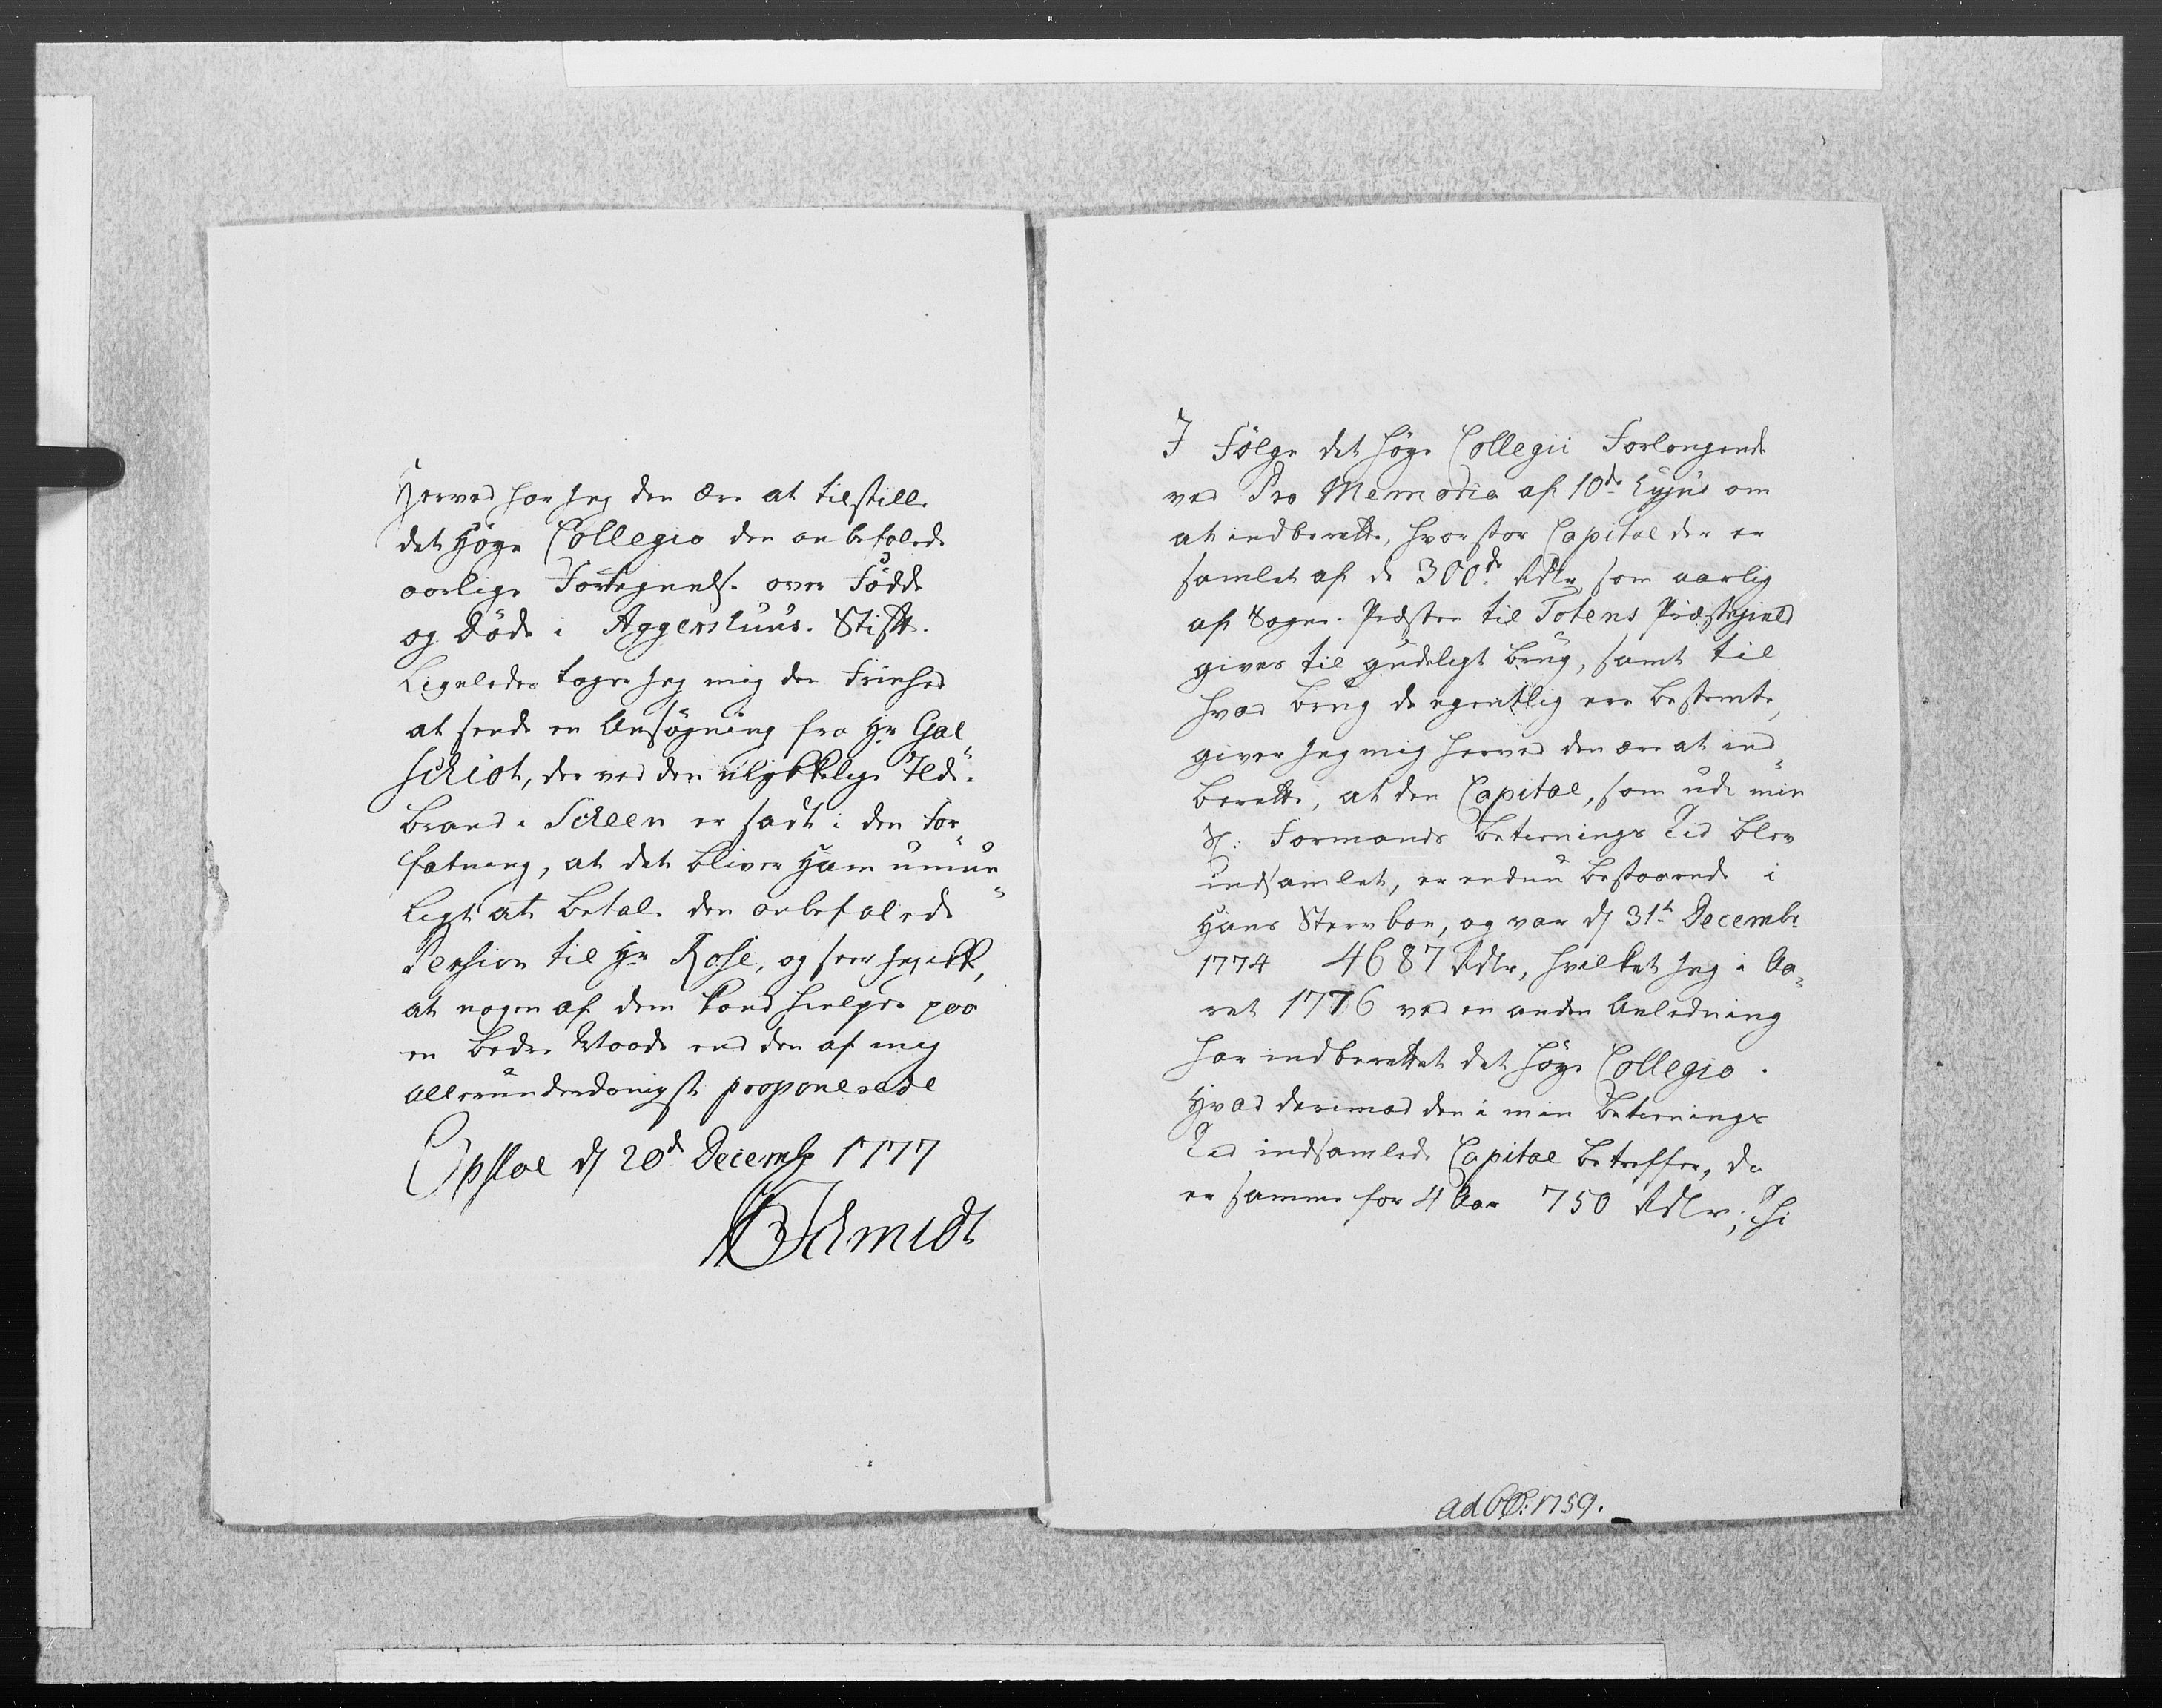 Herved har Jeg den Ære at tilstille
det Høye Collegio den anbefalede
aarlige Fortegnelse over Födde
og Døde i Aggershuus Stift.
Ligeledes tager Jeg mig den Friehed
at sende en Ansøgning fra Hr Gal„
schiøt, der ved den ulykkelige Ild„
brand i Scheen er sadt i den For„
fatning, at det bliver Ham umue„
ligt at betale den anbefalede
Pension til Hr Rose, og seer Jeg ikke,
at nogen af dem kand hielpes paa
en bedre Maade end den af mig
allerunderdanigst proponerede
Opsloe d 20de Decembr 1777
Schmidt
I Følge det høye Collegii Forlangende
ved Pro Memoria af 10de hujus om
at indberette, hvor stor Capital der er
samlet af de 300de Rdlr, som aarlig
af Sogne-Præsten til Totens Præstegield
gives til gudeligt brug, samt til
hvad brug de egentlig ere bestemte,
giver Jeg mig herved den ære at ind„
berette, at den Capital, som udi min
S. Formands betienings Tid blev
indsamlet, er endnu bestaaende i
Hans Sterbboe, og var d 31te Decembr
1774 4687 Rdlr, hvilket Jeg i Aa„
ret 1776 ved en anden Anledning
har indberettet det høye Collegio.
Hvad derimod den i min betienings
Tid indsamlede Capital betreffer, da
er samme for 4 Aar 750 Rdlr; Thi
ad 1759.